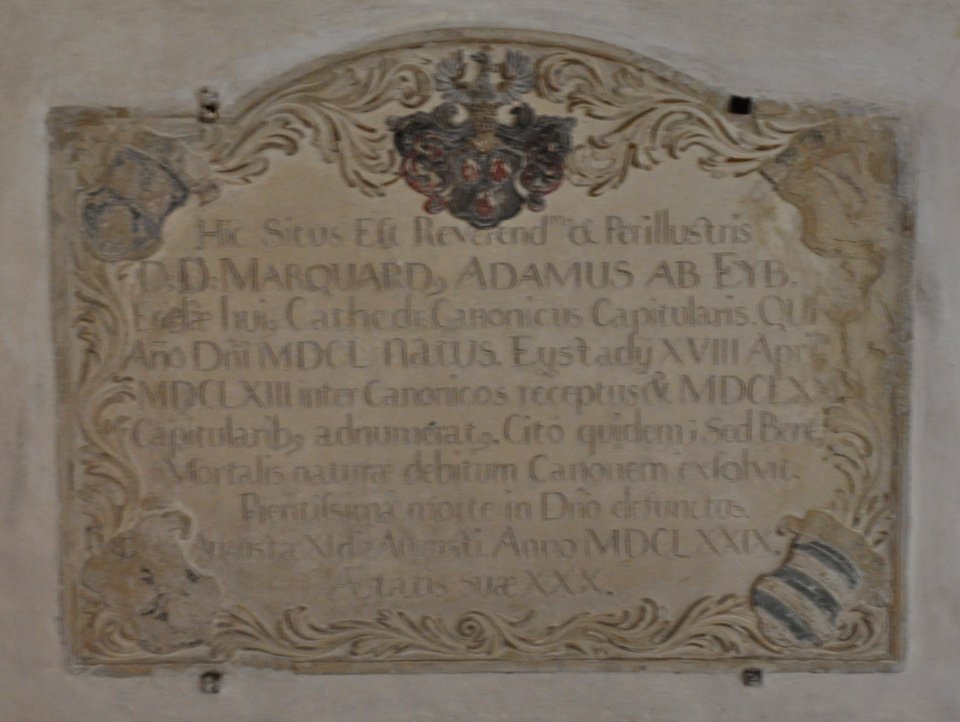 Hic Situs Est Reverend^mus & Perillustris
D.D. MARQUARD9 ADAMUS AB EYB.
Eccłæ hui9 Cathedr: Canonicus Capitularis. QUI
Año Dñi MDCL NATUS. Eystadij XVIII April
MDCLXIII inter Canonicos receptus & MDCLXX
Capitularib9 adnumerat9. Cito quidem; Sed Bene
Mortalis naturæ debitum Canonem exsolvit.
Pientissima morte in Dño defunctus.
Augustæ XI die Augusti. Anno MDCLXXIX.
Ætatis suæ XXX.